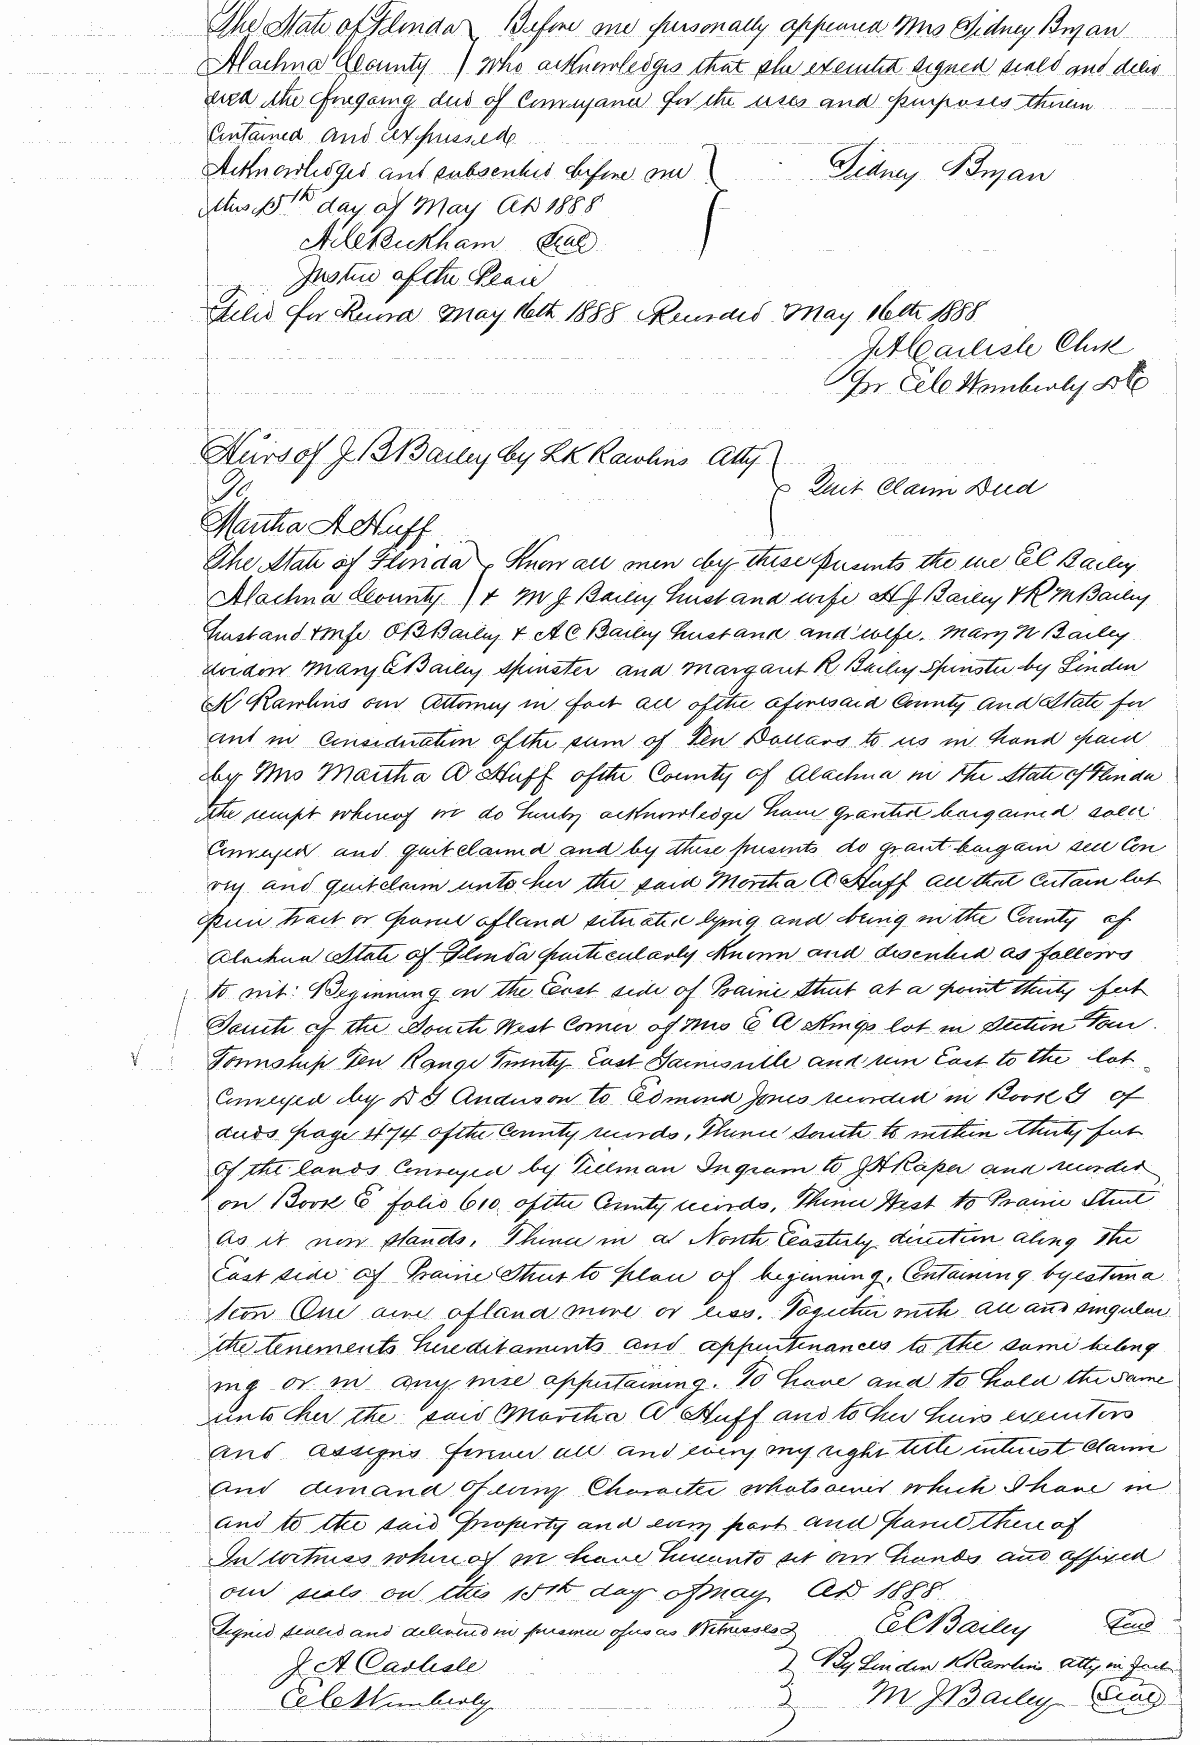 The State of Florida } Before me personally appeared Mrs Sidney Bryan
Alachua County } who acknowledges that she executed signed seald and deliv
ered the foregoing deed of Conveyance for the uses and purposes therein
Contained and expressed
Acknowledged and subscribed before me } Sidney Bryan
this 15th day of May AD 1888
Seal
Justice of the Peace
Filed for Record May 16th 1888 Recorded May 16th 1888
J A Carlisle Clerk
Pr Wimberly DC
Heirs of J B Bailey by L K Rawlins Atty }
To } Quit Claim Deed
Martha A Huff
The State of Florida } Know all men by these presents the we E C Bailey
Alachua County } & M J Bailey husband wife A J Bailey & R M Bailey
husband & wife O B Bailey & A C Bailey husband and wife. Mary N Bailey
widow Mary E Bailey spinster and Margaret R Bailey spinster by Linden
K Rawlins our Attorney in fact all of the aforesaid County and State for
and in Consideration of the sum of Ten Dollars to us in hand paid
by Mrs Martha A Huff of the County of Alachua in the State of Florida
the receipt whereof we do hereby acknowledge have granted bargained sold
Conveyed and quitclaimed and by these presents do grant bargain sell Con
vey and quitclaim unto her the said Martha A Huff all that Certain lot
piece tract or parcel of land situated lying and being in the County of
Alachua State of Florida particularly known and described as follows
to wit: Beginning on the East side of Prairie Street at a point thirty feet
South of the South West Corner of Mrs E A Kings lot in Section Four
Township Ten Range Twenty East Gainesville and run East to the lot
Conveyed by D G Anderson to Edmond Jones recorded in Book G of
deeds page 474 of the County records, Thence South to within thirty feet
of the lands Conveyed by Tillman Ingram to J H Kaper and recorded
on Book E folio 610 of the County records, Thence West to Prairie Street
as it now stands, Thence in a North Easterly direction along the
East side of Prairie Street to place of beginning, Containing by estima
tion One acre of land more or less. Together with all and singular
the tenements hereditaments and appurtenances to the same belong
ing or in any wise appertaining. To have and to hold the same
unto her the said Martha A Huff and to her heirs executors
and assigns forever all and every my right title interest claim
and demand of every Character whatsoever which I have in
and to the said Property and every part and Parcel there of
In witness where of we have hereunto set our hands and affixed
our seals on this 15th day of May AD 1888
Signed sealed and delivered in presence of us as Witnesses } E C Bailey Seal
J A Carlisle } By Linden K Rawlins atty in fact
Wimberly } M J Bailey Seal